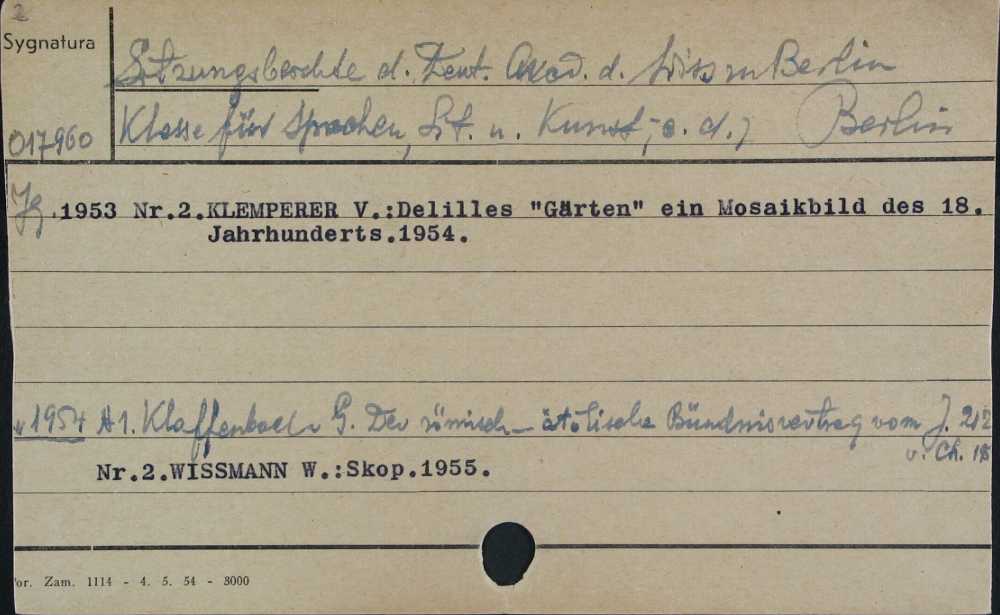 2
Sygnatura
Sitzungsberichte d. Deut. Akad. d. Wiss zu Berlin
017960
Klasse für Sprachen, Lit. u. Kunst,
Berlin
Jg. 1953 Nr.2.KLEMPERER V.:Delilles "Gärten" ein Mosaikbild des 18.
Jahrhunderts.1954.
" 1954 N 1. Klaffenbach G. Der römisch-ätolische Bündnisvertrag vom J. 212
v. Ch. 
Nr.2.WISSMANN W.:Skop.1955.
or. Zam. 1114 - 4. 5. 54 - 3000